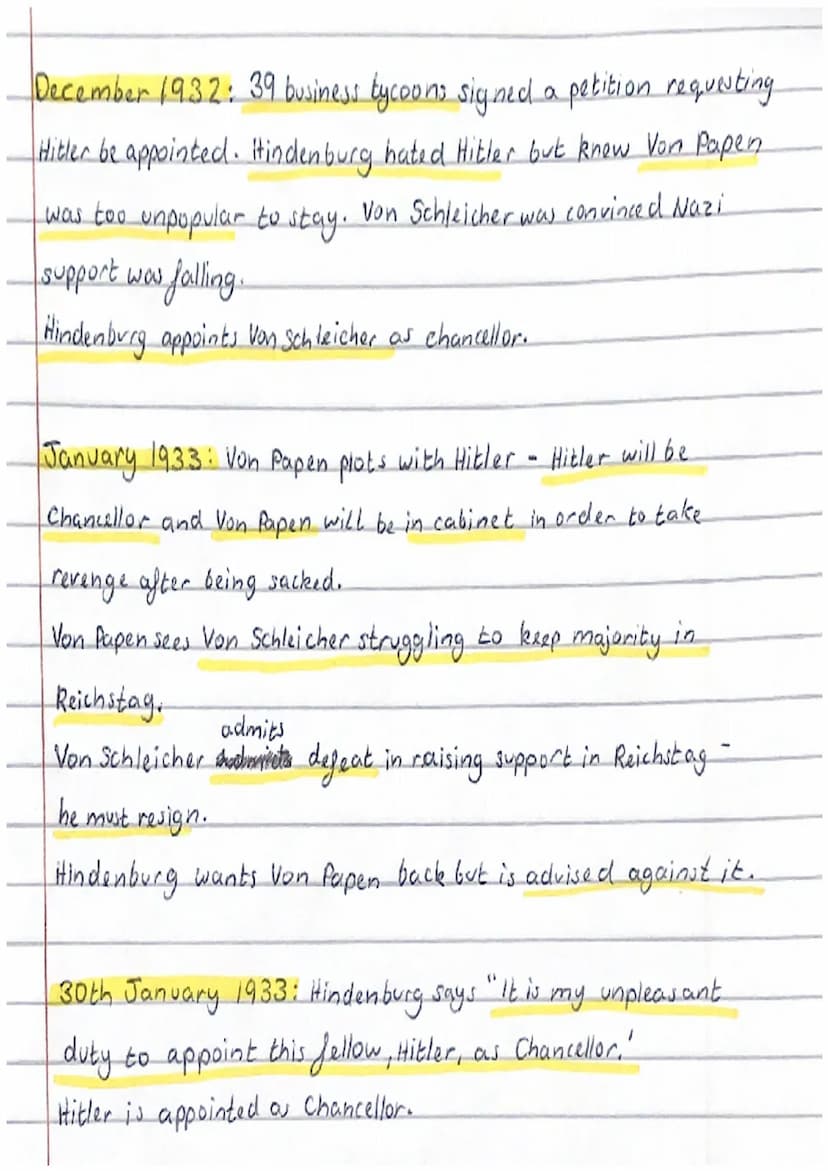 December 1932: 39 business tycoons signed a petition requesting
Hitler be appointed. Hindenburg hated Hitler but knew Von Papen
was too unpopular to stay. Von Schleicher was convinced Nazi
support was falling.
Hindenburg appoints Von Schleicher as chancellor.
January 1933: Von Papen plots with Hitler - Hitler will be
Chancellor and Von Papen will be in cabinet in order to take
revenge after being sacked.
Von Papen sees Von Schleicher struggling to keep majority in
Reichstag.
admits
Von Schleicher defeat in raising support in Reichstag -
he must resign.
Hindenburg wants Von Papen back but is advised against it.
30th January 1933: Hindenburg says "It is my unpleasant
duty to appoint this fellow, Hitler, as Chancellor.'
Hitler is appointed as Chancellor.